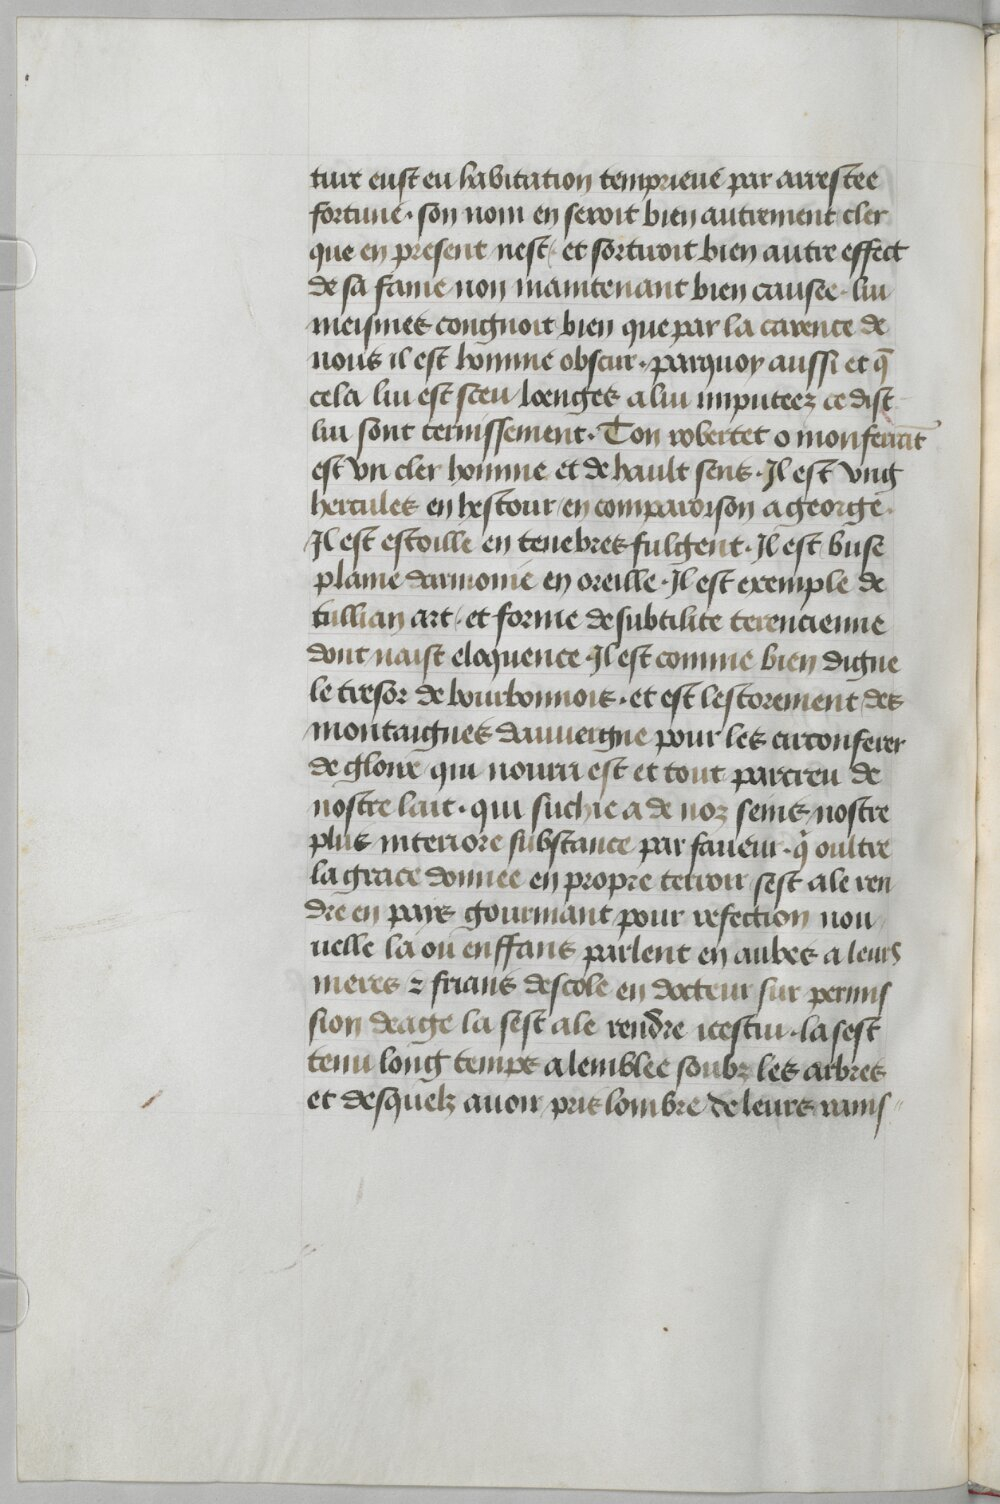 ture eust eu habitation temprieue par arrestee
fortune · son nom en seroit bien autrement cler
que en present nest / et sortiroit bien autre effect
de sa fame non maintenant bien causee · lui
meismes congnoit bien que par la carence de
nous il est homme obscur · parquoy aussi et q̄
cela lui est sceu / loenges a lui imputeez ce dist
lui sont ternissement · Ton robertet o monferrãt
est vn cler homme et de hault sens · Il est vng
hercules en hestour / en comparoison a george ·
Il est estoille en tenebres fulgent · Il est buse
plaine darmonie en oreille · Il est exemple de
tullian art / et forme de subtilite terencienne
dont naist eloquence · Il est comme bien digne
le tresor de bourbonnois · et est lestorement des
montaignes dauuergne pour les circonferer
de gloire qui nourri est et tout parcreu de
nostre lait · qui suchie a de noz seins nostre
plus interiore substance par faueur · q̃ oultre
la grace donnee en propre terroir sest ale ren
dre en pays gourmant pour refection nou
uelle la ou enffans parlent en aubes a leurs
meres ⁊ frians descole en docteur sur permis
sion deage la sest ale rendre icestui · la sest
tenu long temps a lemblee soubz les arbres
et desquelz auoir pris lombre de leurs rams